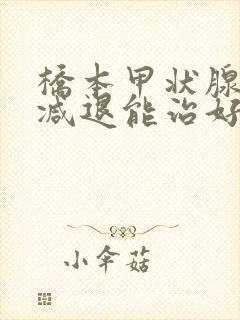 橋本甲状腺
减退能治好
小伞菇